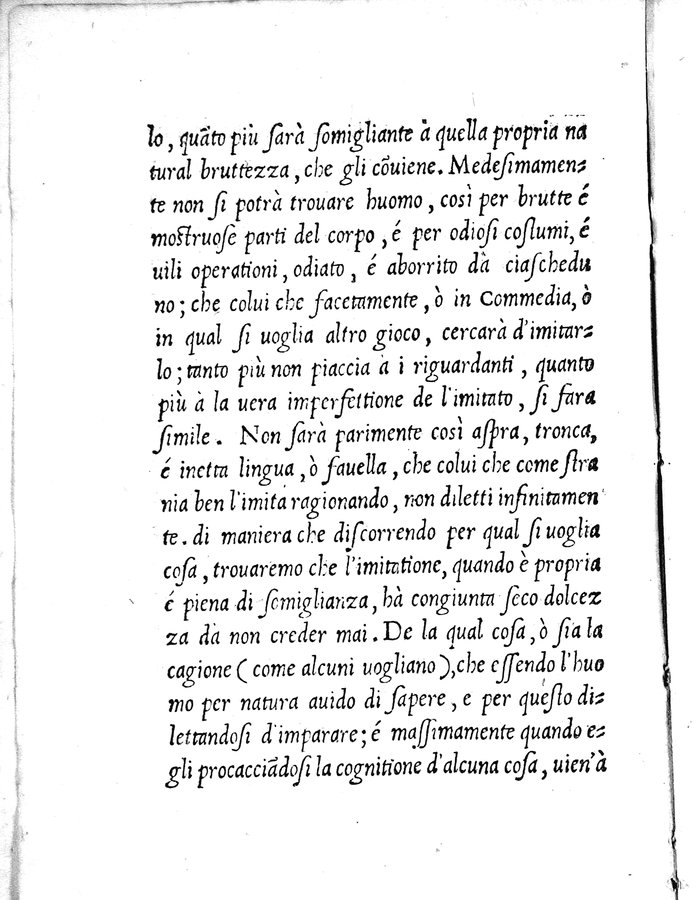 lo, quãto più ſarà ſomigliante à quella propria na
tural bruttezza, che gli cõuiene. Medeſimamen⸗
te non ſi potrà trouare huomo, così per brutte é
moſtruoſe parti del corpo, é per odioſi coſtumi, é
uili operationi, odiato, é aborrito dà ciaſchedu
no; che colui che facetamente, ò in Commedia, ò
in qual ſi uoglia altro gioco, cercarà d'imitar⸗
lo; tanto più non piaccia à i riguardanti, quanto
più à la uera imperfettione de l'imitato, ſi fara
ſimile. Non ſarà parimente così aſpra, tronca,
é inetta lingua, ò fauella, che colui che come ſtra
nia ben l'imita ragionando, non diletti infinitamen
te. di maniera che diſcorrendo per qual ſi uoglia
coſa, trouaremo che l'imitatione, quando è propria
é piena di ſomiglianza, hà congiunta ſeco dolcez
za dà non creder mai. De la qual coſa, ò ſia la
cagione (come alcuni uogliano), che eſſendo l'huo
mo per natura auido di ſapere, e per queſto di⸗
lettandoſi d'imparare; é maſſimamente quando e⸗
gli procacciãdoſi la cognitione d'alcuna coſa, uien'à